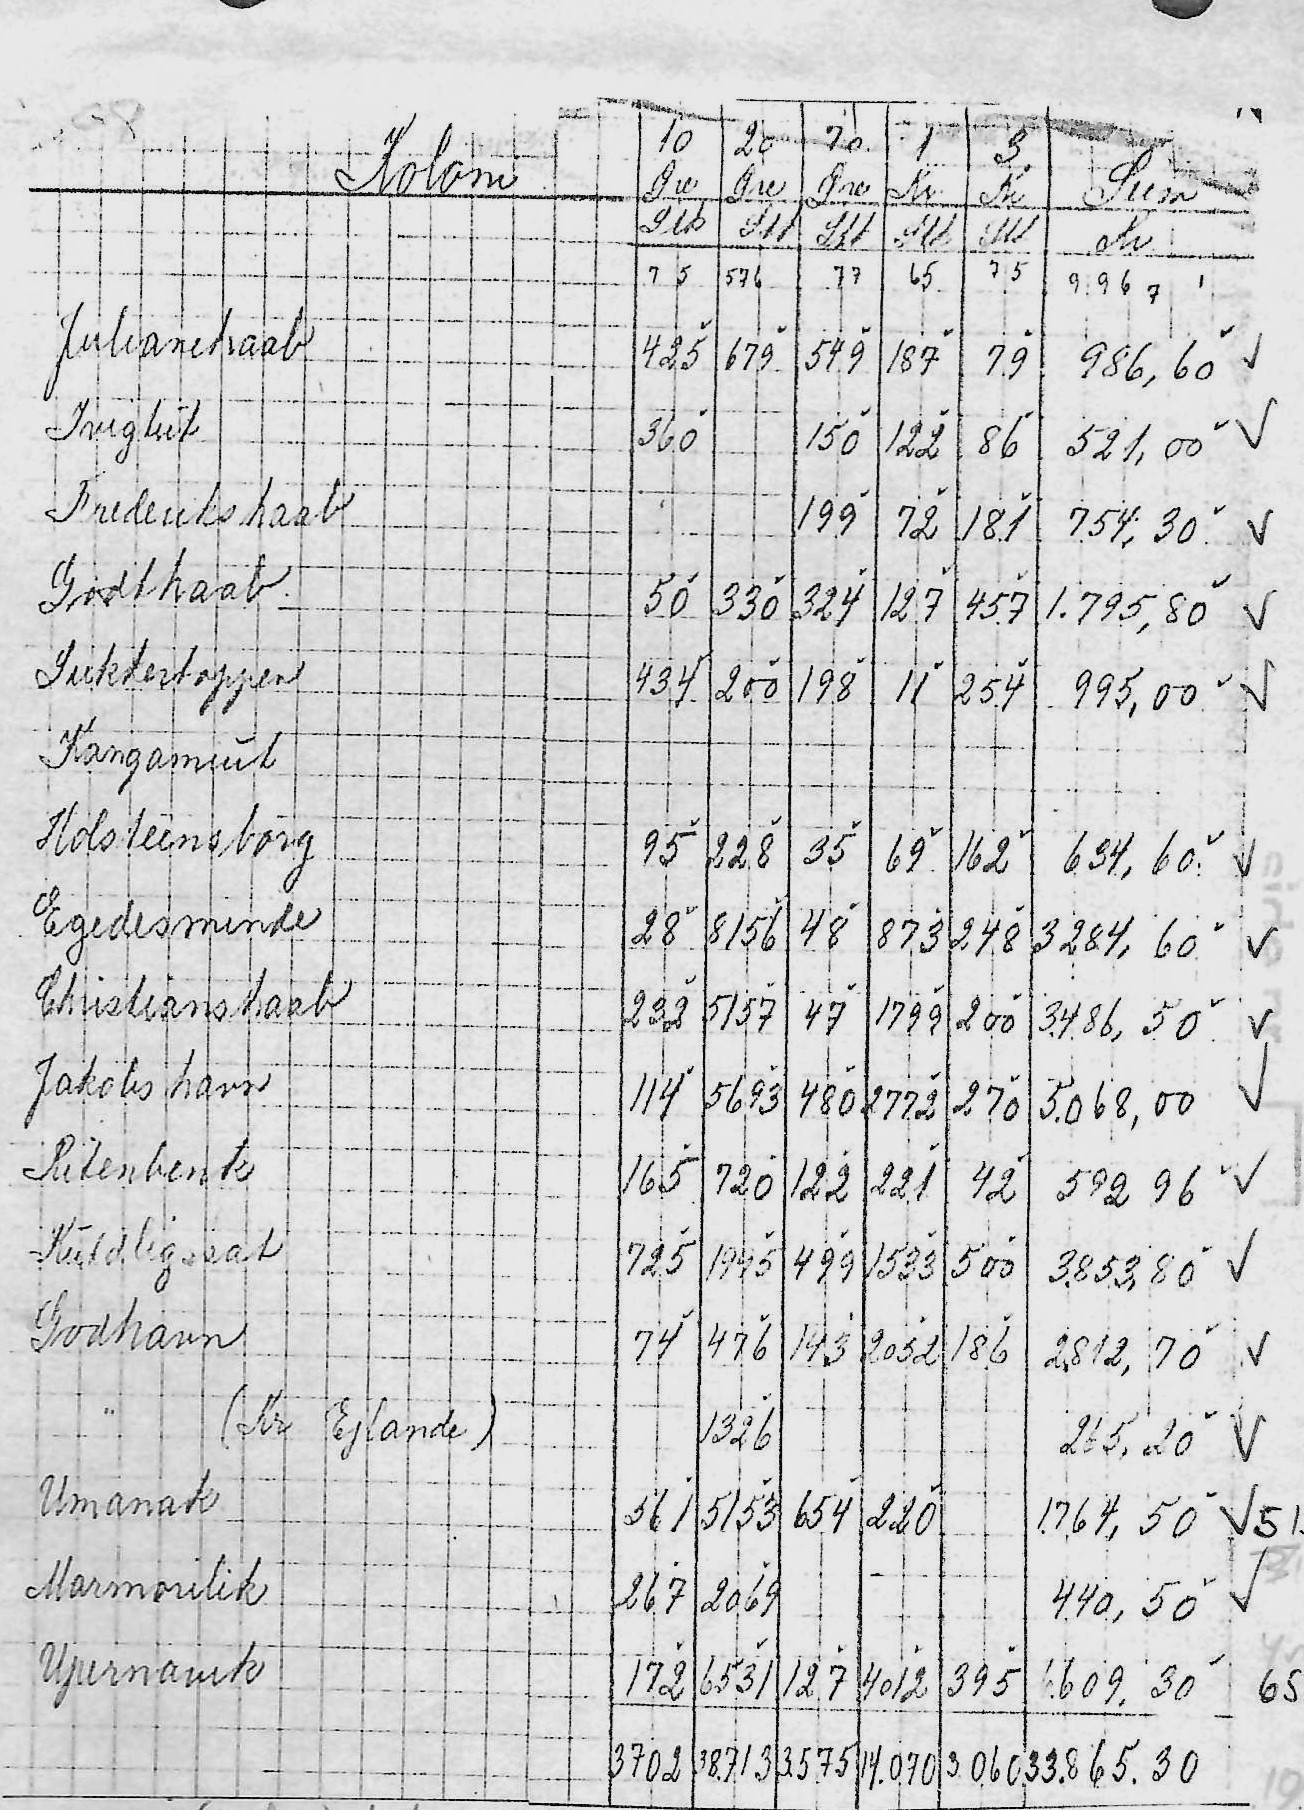 Koloni 10 20 70 1 3 Sum
Øre Øre Øre Kr. Kr
Stk Stk Stk Stk Stk Kr.
75 576 77 65 75 9967
Julianehaab 425 679 549 187 79 986,60
Ivigtut 360 150 122 86 521,00
Frederikshaab 199 72 181 754,30
Godthaab 50 330 324 127 457 1.795,80
Sukkertoppen 434 200 198 11 254 995,00
Kangamiut
Holsteensborg 95 228 35 69 162 634,60
Egedesminde 28 8156 48 873 248 3284,60
Christianshaab 232 5157 47 1799 200 3486,50
Jakobshavn 114 5693 480 2772 270 5.068,00
Ritenbenk 165 720 122 221 42 592 96
Kutdligssat 725 1995 499 1533 500 3853,80
Godhavn 74 476 143 2052 186 2812,70
" (Kr Ejlande) 1326 265,20
Umanak 361 5153 654 220 1.764,50 51
Marmorilik 267 2069 440,50
Upernavik 172 6531 127 4012 395 6609.30 65
3702 38713 3575 14.070 3.060 33.865.30